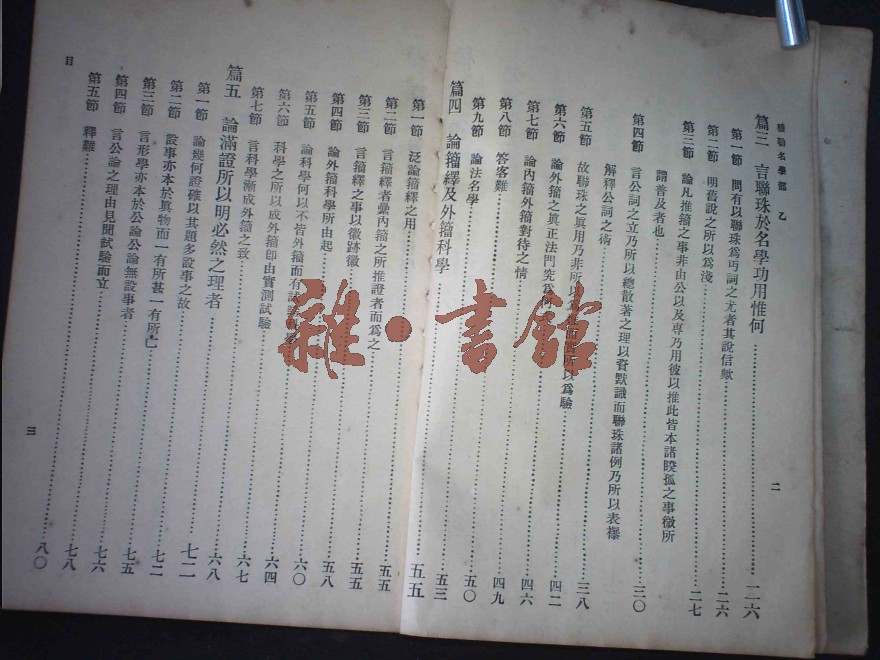 穆勒名學部 乙
二
篇三 言聯珠於名學功用惟何……二六
第一節 問有以聯珠爲丐詞之尤者其說信歟……二六
第二節 明舊說之所以爲淺……二七
第三節 論凡推籀之事非由公以及專乃用彼以推此皆本諸睽孤之事徵所
謂普及者也……三〇
第四節 言公詞之立乃所以總散著之理以資默識而聯珠諸例乃所以表襮
解釋公詞之術……三八
第五節 故聯珠之眞用乃非所以爲 所以爲驗……四二
第六節 論外籀之眞正法門究爲何……四六
第七節 論內籀外籀對待之情……四九
第八節 答客難……五〇
第九節 論法名學……五三
篇四 論籀繹及外籀科學……五五
第一節 泛論籀繹之用……五五
第二節 言籀繹者彙內籀之所推證者而爲之……五五
第三節 言籀繹之事以徵跡徵……五八
第四節 論外籀科學所由起……六〇
第五節 論科學何以不皆外籀而有試……六四
第六節 科學之所以成外籀卽由實測試驗……六七
第七節 言科學漸成外籀之致……六八
篇五 論滿證所以明必然之理者……七二
第一節 論幾何證確以其題多設事之故……七二
第二節 設事亦本於眞物而一有所甚一有所亡……七五
第三節 言形學亦本於公論公論無設事者……七六
第四節 言公論之理由見聞試驗而立……七八
第五節 釋難……八〇
目
三
雜·書館